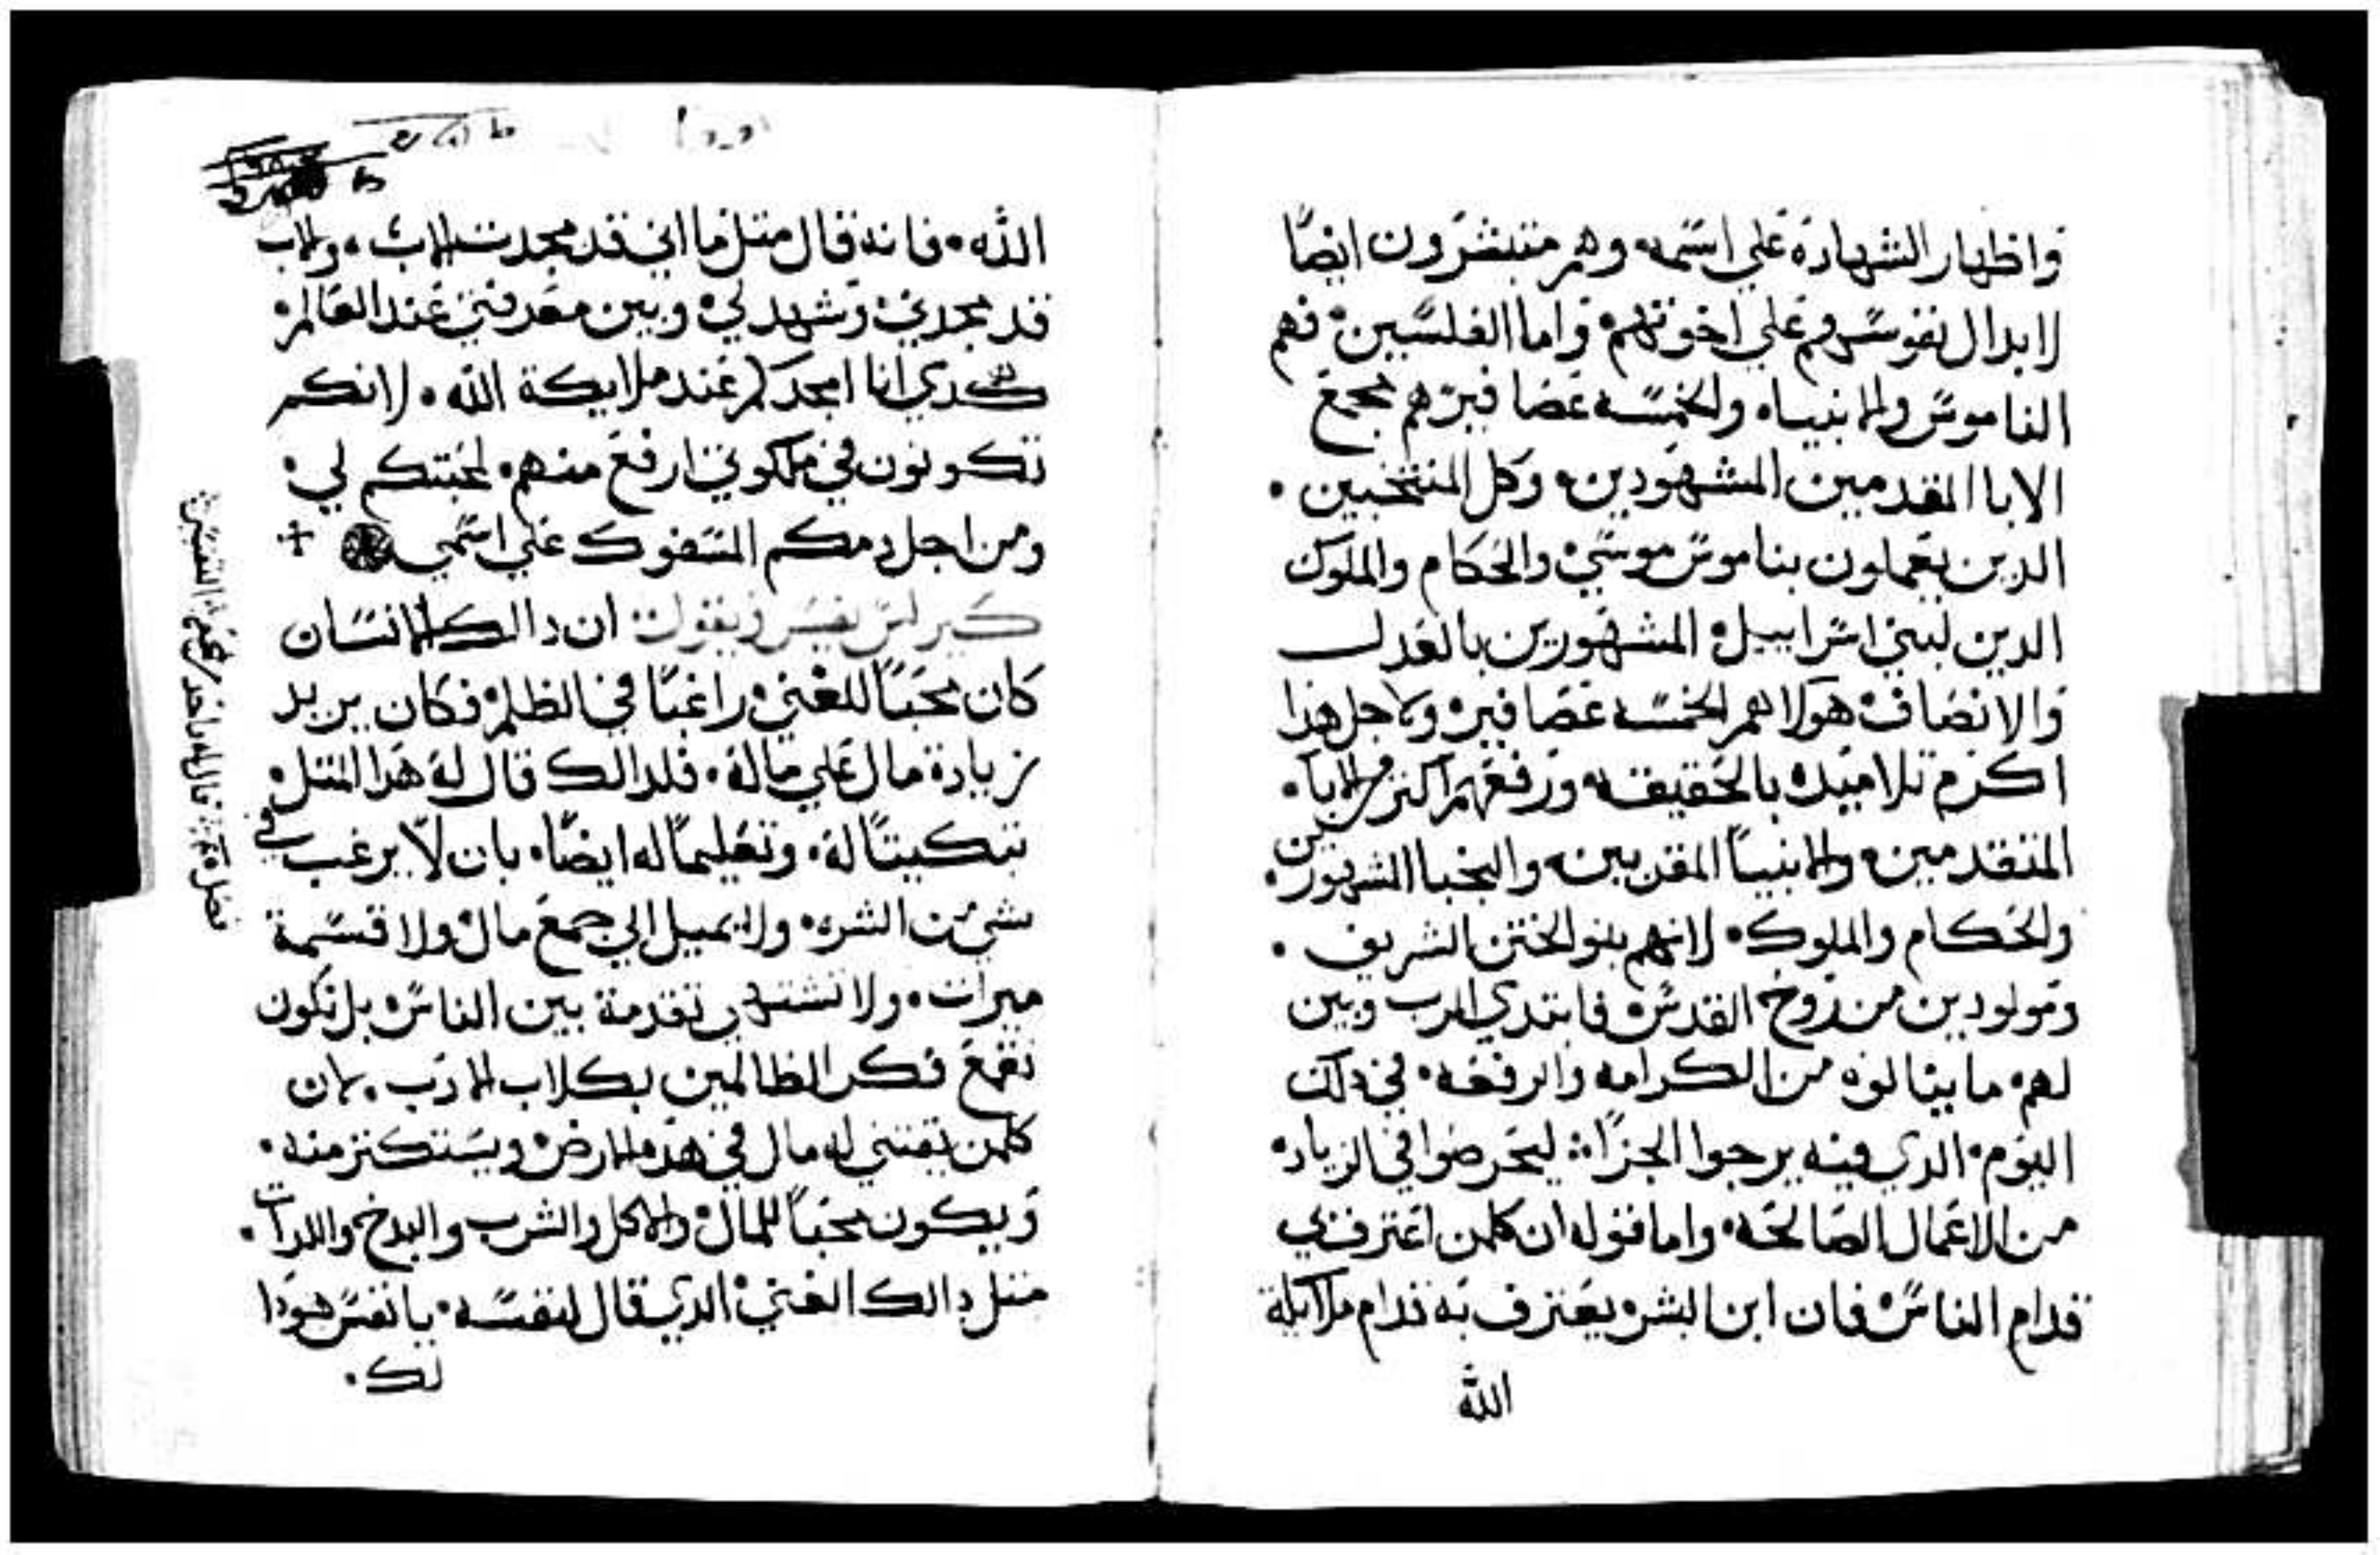 واظهار الشهادة علي اسمه وهم متبشرون ايضًا
لابدال نفوسهم علي اخوتهم واما الفلسين فهم
الناموس والانبياء والخمسه عصافير هم مجمع
الابا المقدمين المشهودين وكل المنتخبين ·
الدين يعملون بناموس موسي والحكام والملوك
الدين لبني اسراييل المشهورين بالعدل
والانصاف هولا هم الخمسه عصافير ولاجل هدا
اكرم تلاميده بالحقيقه ورفعهم اكتر من الابا ·
المتقدمين والانبيا المقدمين والنخبا المشهورين ·
والحكام والملوك لانهم بنو الختن الشريف ·
ومولودين من روح القدس فابتدي الرب وبين
لهم ما ينالوه من الكرامه والرفعه في دلك
اليوم الدي فيه يرجوا الجزاء ليحرضوا في الزياده
من الاعمال الصالحه واما قوله ان كلمن اعترف بي
قدام الناس فان ابن البشر يعترف به قدام ملايكة
الله
الله · فانه قال متل ما اني قد مجدت الاب · والاب
قد مجدني وشهد لي وبين معرفتي عند العالم
كدي انا امجدكم عند ملايكة الله · لانكم
تكونون في ملكوتي ارفع منهم لمحبتكم لي ·
ومن اجل دمكم المسفوك علي اسمي +
كيرلس يفسر ويقول ان دالك الانسان
كان محبًا للغني راغبًا في الظلم فكان يريد
زيادة مال علي ماله · فلدالك قال له هدا المتل
تبكيتًا له · وتعليمًا له ايضًا بان لا يرغب في
شي من الشره ولا يميل الي جمع مال ولا قسمة
ميرات · ولا نشتهي تقدمة بين الناس بل نكون
نقمع فكر الظالمين بكلاب الادب · لان
كلمن يقتني له مال في هده الارض ويستكتر منه ·
ويكون محبًا للمال والاكل والشرب والبدخ واللدات ·
متل دالك الغني الدي قال لنفسه يا نفس هودا
لك ·